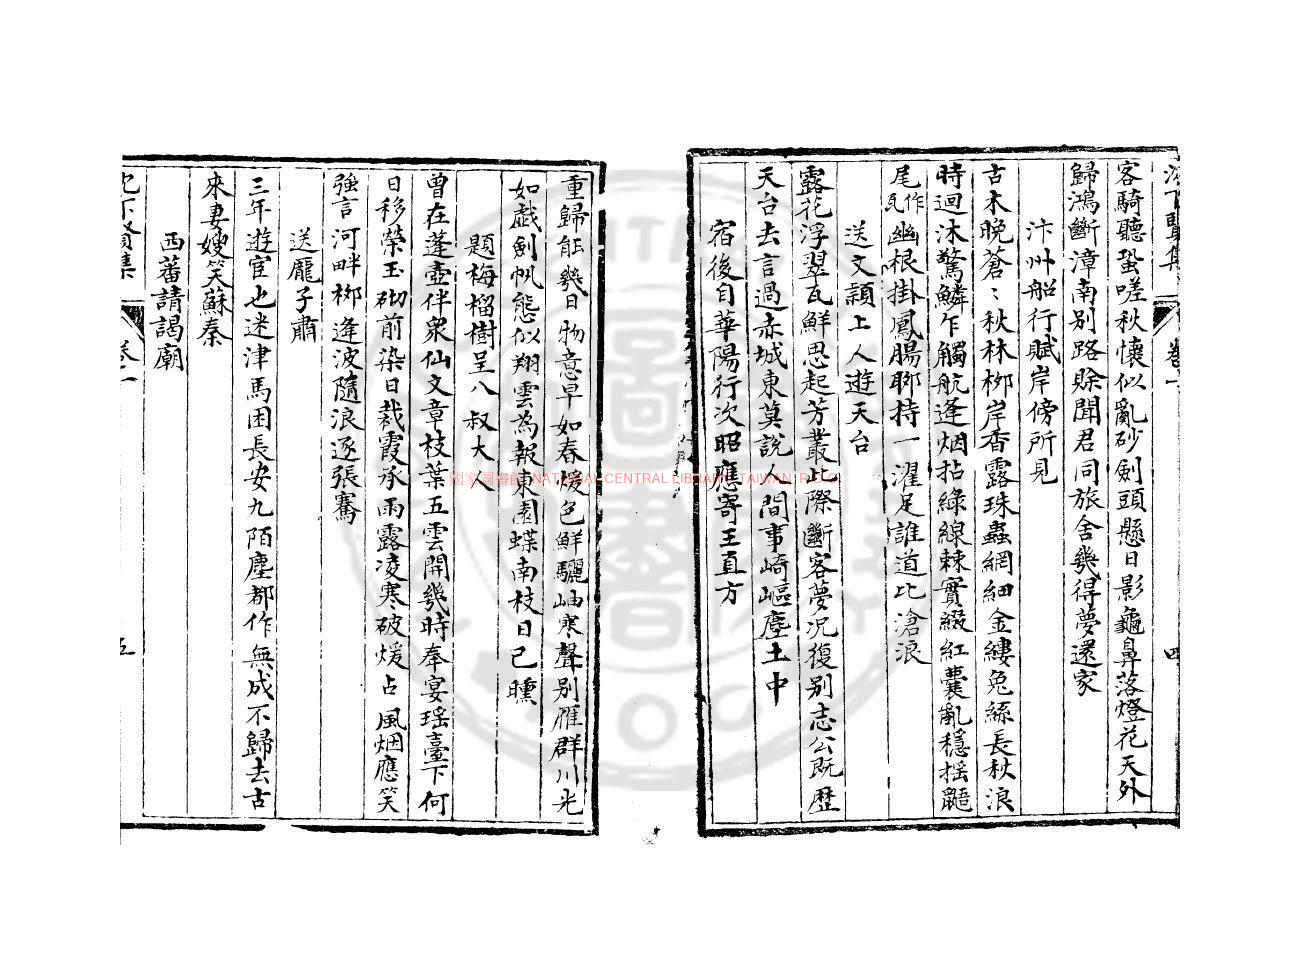 沈下賢集 卷一 四
客騎聽蛩嗟秋懷似亂砂劍頭懸日影龜鼻落燈花天外
歸鴻斷漳南別路賒聞君同旅舍幾得夢還家
汴州船行賦岸傍所見
古木晚蒼〻秋林栁岸香露珠蟲網細金縷兔絲長秋浪
時迴沐驚鱗乍觸航逢烟拈綠線棘實綴紅囊亂穩搖鼯
尾作瓦幽根掛鳳腸聊持一濯足誰道比滄浪
送文潁上人遊天台
露花浮翠瓦鮮思起芳叢此際斷客夢况復别志公既歷
天台去言過赤城東莫說人間事崎嶇塵土中
宿後自華陽行次昭應寄王直方
重歸能幾日物意早如春煖色鮮驪岫寒聲别雁群川光
如戯劍帆態似翔雲為報東園蝶南枝日已曛
題梅榴樹呈八叔大人
曾在蓬壺伴衆仙文章枝葉五雲開幾時奉宴瑶臺下何
日移榮玉砌前染日裁霞承雨露凌寒破煖占風烟應笑
強言河畔栁逢波隨浪逐張騫
送龐子肅
三年遊宦也迷津馬困長安九陌塵都作無成不歸去古
來妻嫂笑蘇秦
西蕃請謁廟
沈下賢集 卷一 五
國家圖書館 NATIONAL CENTRAL LIBRARY, TAIWAN, R.O.C